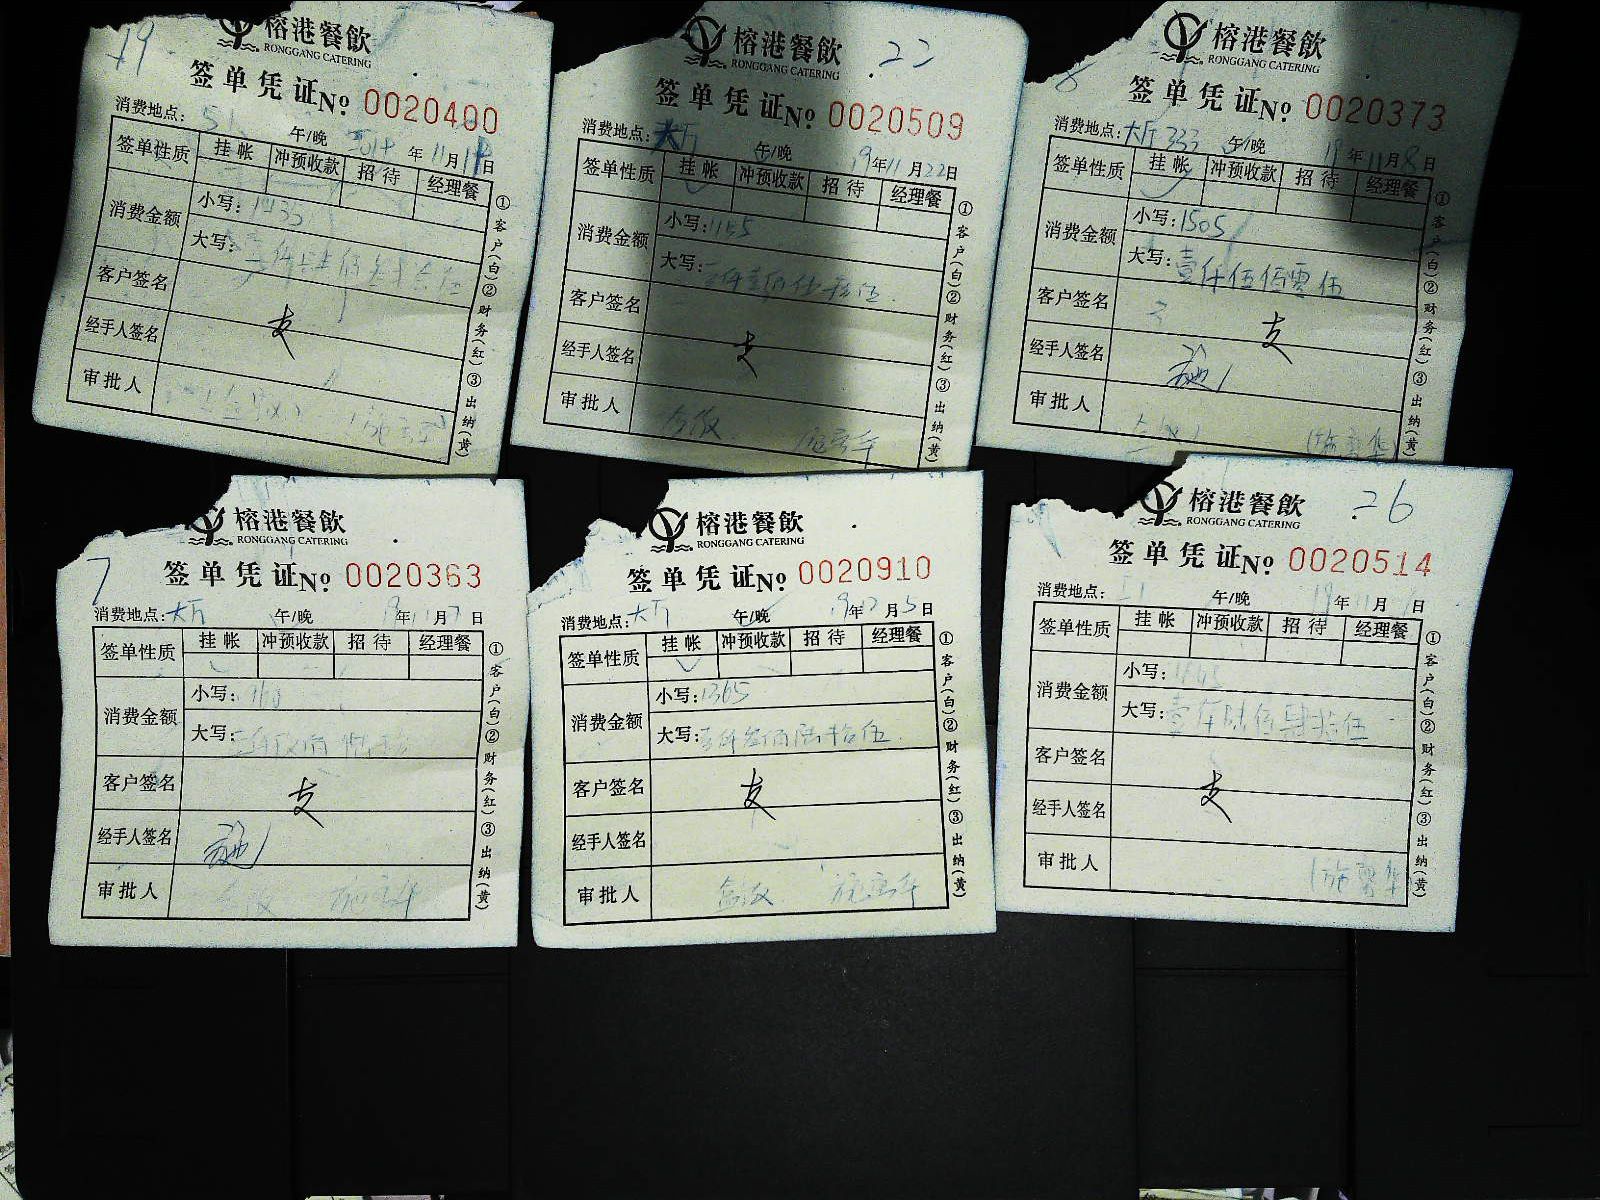 19
榕港餐飲
RONGGANG CATERING
签单凭证№ 0020400
消费地点: 午/晚 年11月19日
签单性质 挂帐 冲预收款 招待 经理餐
消费金额 小写:
大写:
客户签名
支
经手人签名
审批人
①客户(白)②财务(红)③出纳(黄)
22
榕港餐飲
RONGGANG CATERING
签单凭证№ 0020509
消费地点:大厅 午/晚 19年11月22日
签单性质 挂帐 冲预收款 招待 经理餐
消费金额 小写:1155
大写:
客户签名
支
经手人签名
审批人
①客户(白)②财务(红)③出纳(黄)
8
榕港餐飲
RONGGANG CATERING
签单凭证№ 0020373
消费地点:大厅333 午/晚 19年11月8日
签单性质 挂帐 冲预收款 招待 经理餐
消费金额 小写:1505
大写:壹仟伍佰零伍
客户签名
支
经手人签名
审批人
①客户(白)②财务(红)③出纳(黄)
7
榕港餐飲
RONGGANG CATERING
签单凭证№ 0020363
消费地点:大厅 午/晚 19年11月7日
签单性质 挂帐 冲预收款 招待 经理餐
消费金额 小写:
大写:
客户签名
支
经手人签名
审批人
①客户(白)②财务(红)③出纳(黄)
榕港餐飲
RONGGANG CATERING
签单凭证№ 0020910
消费地点:大厅 午/晚 19年12月5日
签单性质 挂帐 冲预收款 招待 经理餐
消费金额 小写:1365
大写:壹仟叁佰陆拾伍
客户签名
支
经手人签名
审批人
①客户(白)②财务(红)③出纳(黄)
26
榕港餐飲
RONGGANG CATERING
签单凭证№ 0020514
消费地点: 午/晚 19年11月 日
签单性质 挂帐 冲预收款 招待 经理餐
消费金额 小写:1645
大写:壹仟陆佰肆拾伍
客户签名
支
经手人签名
审批人
①客户(白)②财务(红)③出纳(黄)